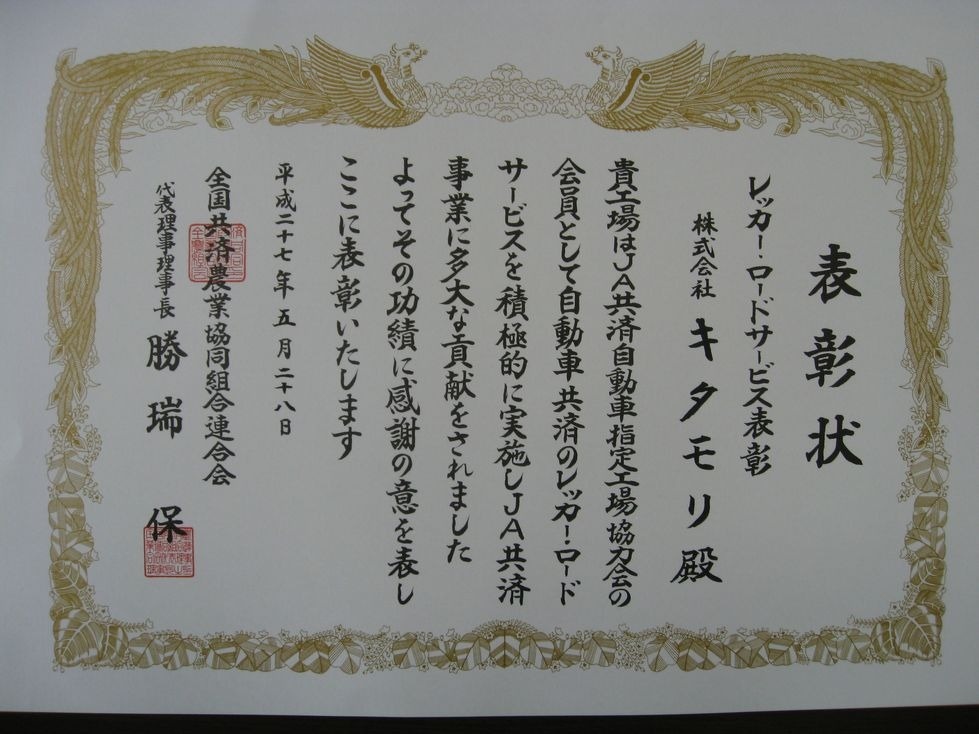 表彰状
レッカー・ロードサービス表彰
株式会社 キタモリ 殿
貴工場はJA共済自動車指定工場協力会の
会員として自動車共済のレッカー・ロード
サービスを積極的に実施しJA共済
事業に多大な貢献をされました
よってその功績に感謝の意を表し
ここに表彰いたします
平成二十七年五月二十八日
全国共済農業協同組合連合会
代表理事理事長 勝瑞 保